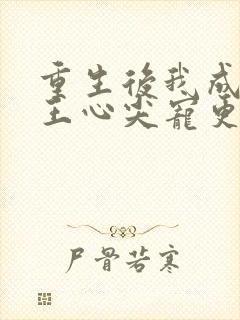 重生後我成
王心尖寵更
尸骨若寒